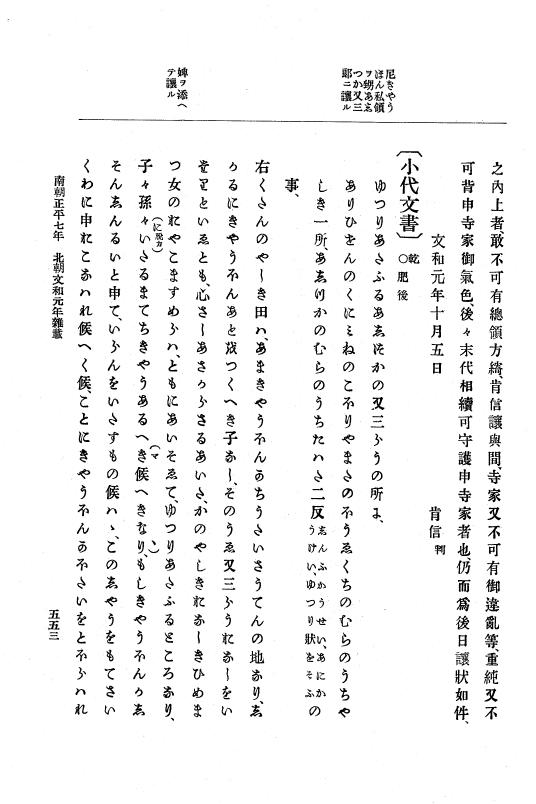 尼きやう
ほん私領
ヲ甥あゑ
つか又三
郎ニ讓ル
婢ヲ添ヘ
テ讓ル
之內上者敢不可有總領方綺、肯信讓與間、寺家又不可有御違亂等、重純又不
可背申寺家御氣色、後々末代相續可守護申寺家者也、仍而爲後日讓狀如件、
文和元年十月五日
肯信判
〔小代文書〕乾 ○肥後
ゆつりあたふるあゑつかの又三らうの所よ、
ありひせんのくにミねのこほりやまさとのそうゑくちのむらのうちや
しき一所、かのむらのうちたハた二反ゑんふかうせい、あにかうけい、ゆつり狀をそふの
事、
右くたんのやしき田ハ、あまきやうほんかちうたいさうてんの地なり、ゑ
かるにきやうほんあと成つくへき子なし、そのうゑ又三らうハおなしをい
といゑとも、心さしあさからさるあいた、かのやしきにおなしきひめま
つ女のにやこますめらハ、ともにあいそゑて、ゆつりあたふるところなり、
子々孫々(に脫カ)いたるまてちきやうあるへき候(マヽ)へきなり、もしきやうほんかゑ
そんゑんるいと申て、いらんをいたすもの候ハヽ、このゑやうをもてさい
くわに申おこなハれ候へく候、ことにきやうほんかほたいをとふらハれ
南朝正平七年 北朝文和元年雜載
五五三